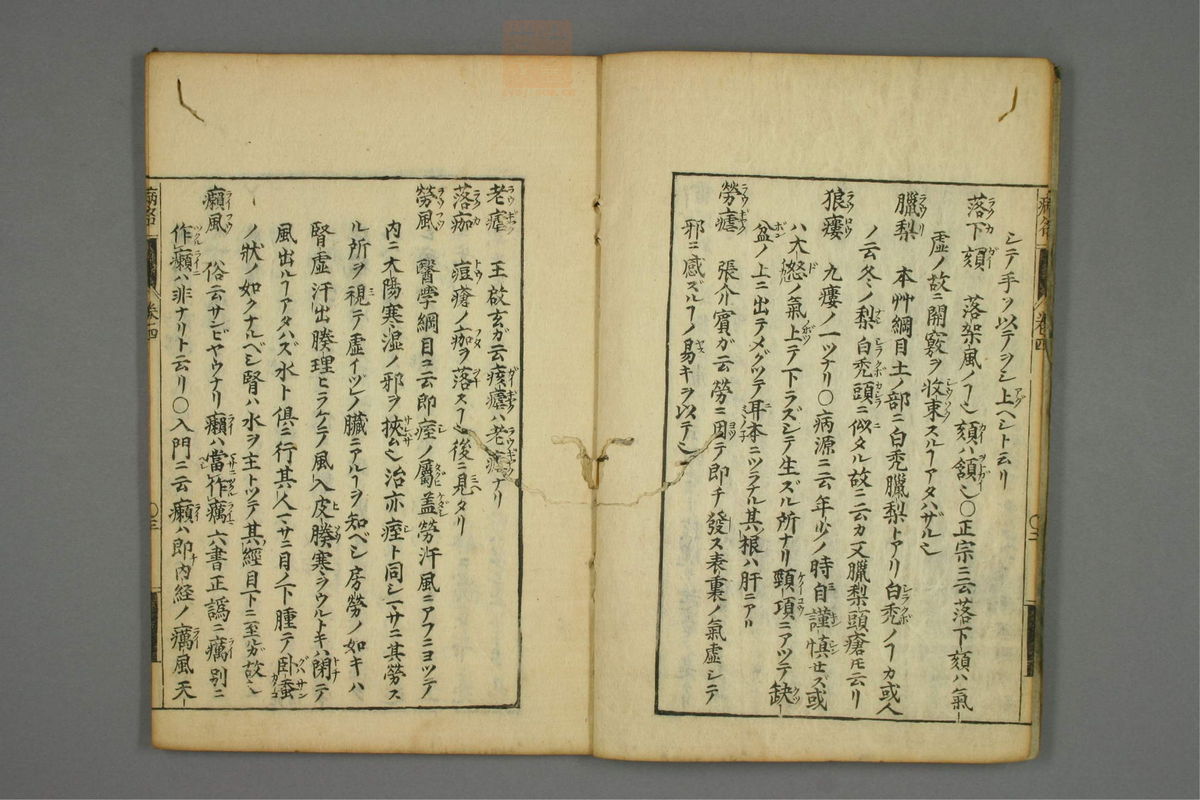 シテ手ヲ以テヲシ上ヘシト云リ
落下頦 落架風ノヿ也頦ハ頷也〇正宗ニ云落下頦ハ氣
虚ノ故ニ開竅ヲ收束スルヿアタハザル也
臘梨 本艸綱目土ノ部ニ白禿臘梨トアリ白禿ノヿカ或人
ノ云冬ノ梨白禿頭ニ似タル故ニ云カ又臘梨頭瘡𪜈云リ
狼瘻 九瘻ノ一ツナリ〇病源ニ云年少ノ時自謹慎せズ或
ハ大怒ノ氣上テ下ラズシテ生ズル所ナリ頸項ニアツテ缺
盆ノ上ニ出テメグツテ耳本ニツラナル其根ハ肝ニアリ
勞瘧 張介賓ガ云勞ニ因テ即チ發ス表裏ノ氣虚シテ
邪ニ感ズルノ易キヲ以テ也
老瘧 王啟玄ガ云痎瘧ハ老瘧ナリ
落痂 痘瘡ノ痂ヲ落スヿ也後ニ見タリ
勞風 醫學綱目ニ云即痓ノ屬蓋勞汗風ニアフニヨツテ
内ニ太陽寒湿ノ邪ヲ挾ム也治亦痓ト同シマサニ其勞ス
ル所ヲ視テ虚イヅレノ臓ニアルヿヲ知ベシ房勞ノ如キハ
腎虚汗出腠理ヒラケテ風入皮腠寒ヲウルトキハ閉テ
風出ルヿアタハズ水ト倶ニ行其人マサニ目ノ下腫テ臥蚕
ノ狀ノ如クナルベシ腎ハ水ヲ主トツテ其經目下ニ至ガ故也
癩風 俗云サンビヤウナリ癩ハ當作癘六書正譌ニ癘別ニ
作癩ハ非ナリト云リ〇入門ニ云癩ハ即内経ノ癘風天
卷四
卷四
〇三